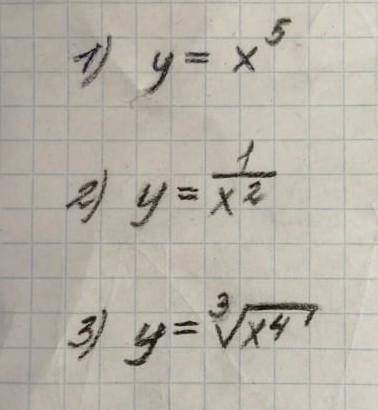 1) y = x⁵
2) y = 1/x²
3) y = ∛(x⁴)